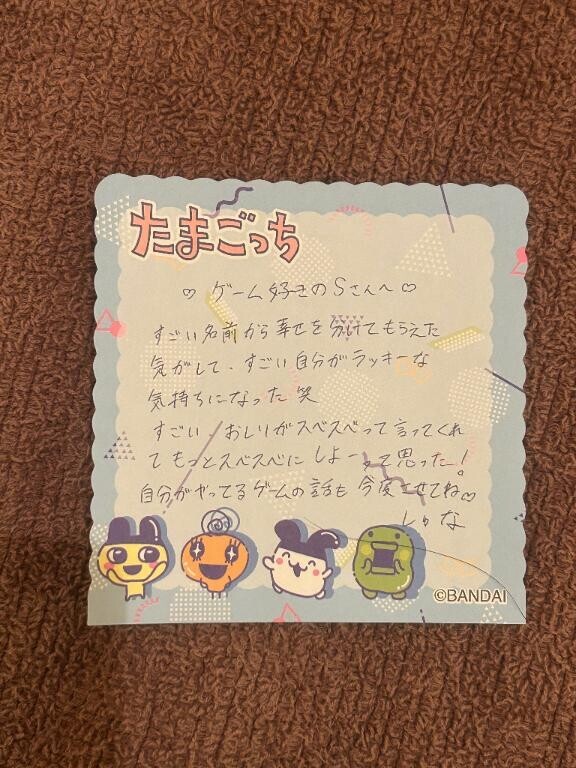 たまごっち
♡ ゲーム好きのSさんへ ♡
すごい名前から幸せを分けてもらえた
気がして、すごい自分がラッキーな
気持ちになった笑
すごい おしりがスベスベって言ってくれ
てもっとスベスベにしよーって思った!
自分がやってるゲームの話も今度させてね♡
しゅな
©BANDAI